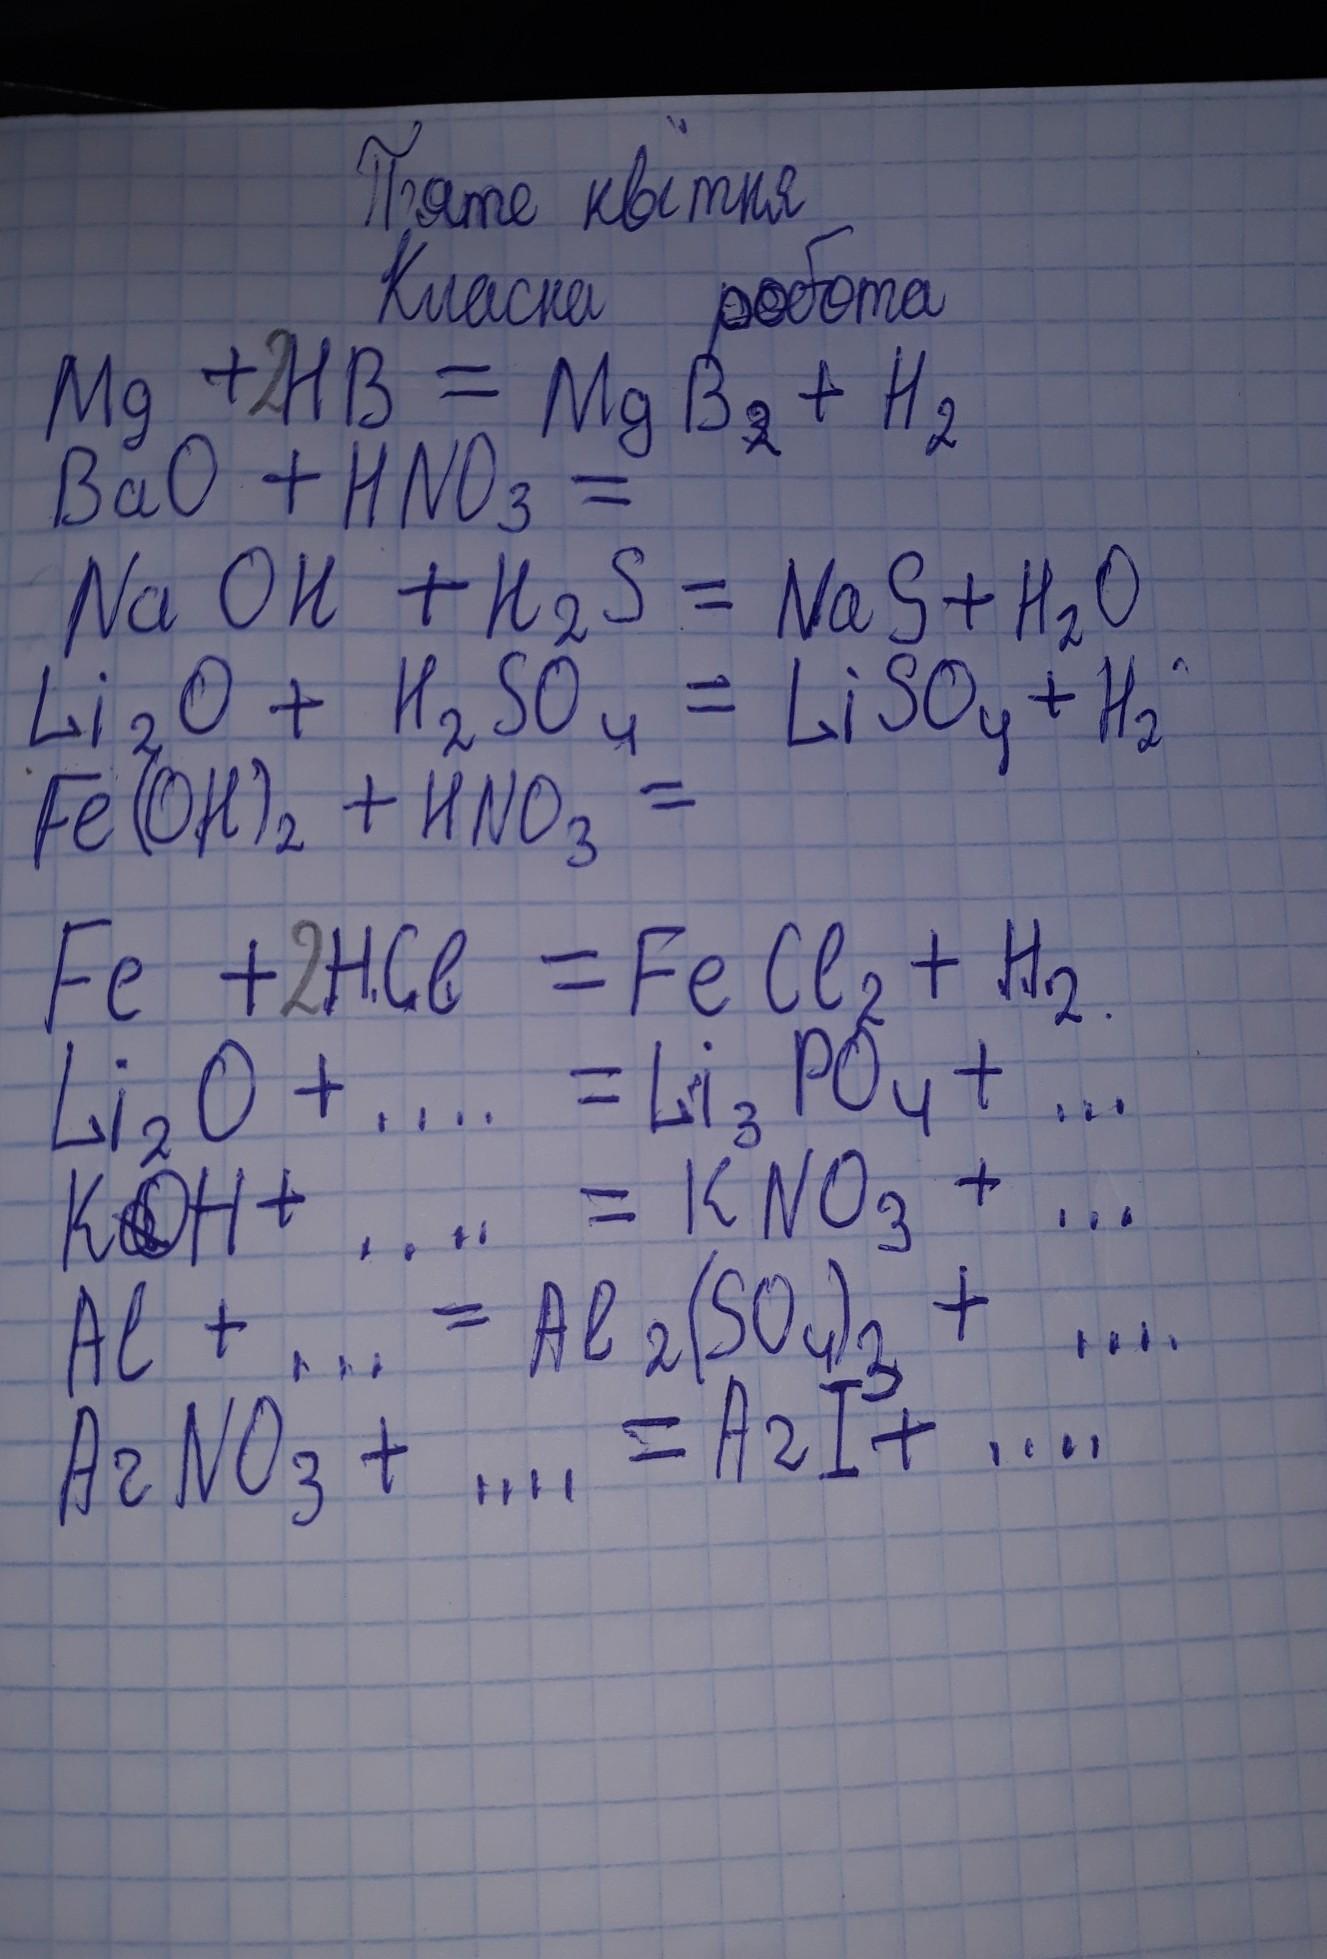 П'яте квітня
Класна робота
Mg + 2HB = MgB₂ + H₂
BaO + HNO₃ =
NaOH + H₂S = NaS + H₂O
Li₂O + H₂SO₄ = LiSO₄ + H₂
Fe(OH)₂ + HNO₃ =
Fe + 2HCl = FeCl₂ + H₂.
Li₂O + .... = Li₃PO₄ + ...
KOH + .... = KNO₃ + ...
Al + .... = Al₂(SO₄)₃ + ....
AgNO₃ + .... = AgI + ....